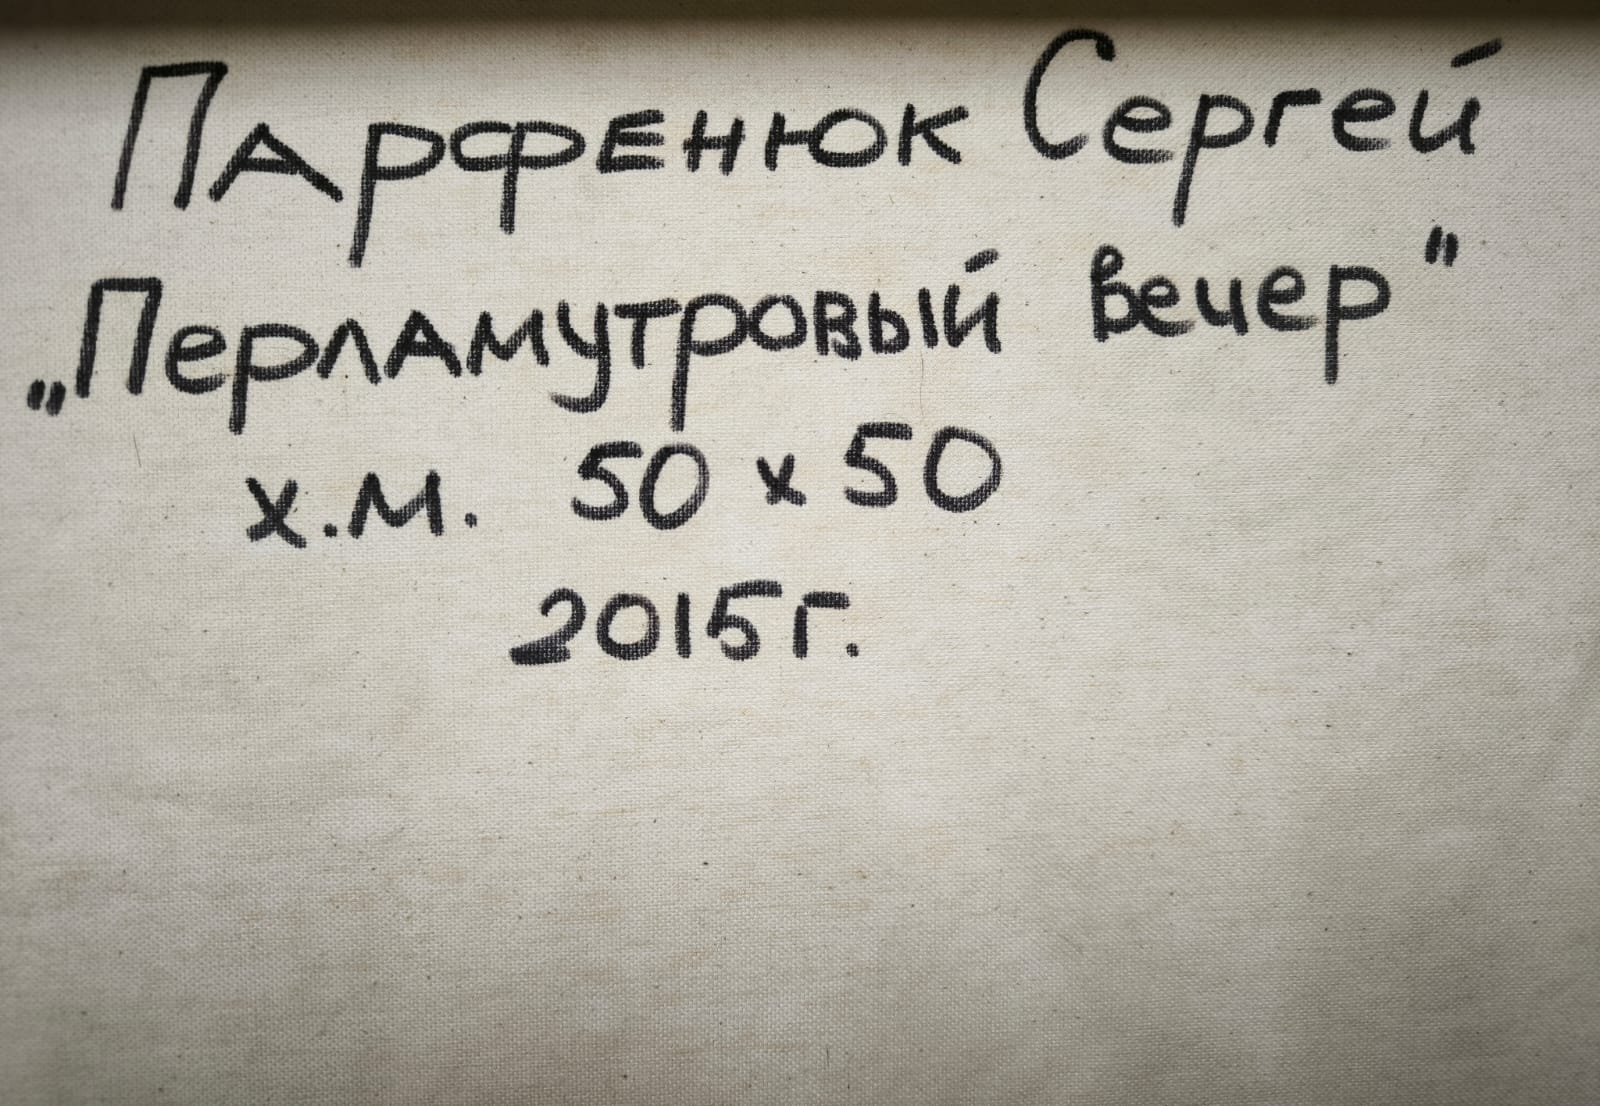 Парфенюк Сергей
„Перламутровый вечер"
х.м. 50 х 50
2015г.